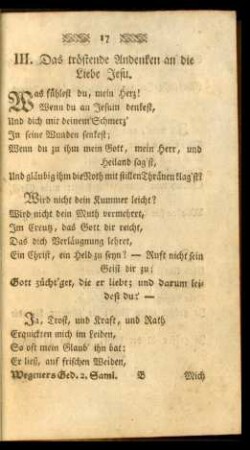 17
III. Das tröstende Andenken an die
Liebe Jesu.
Was fühlest du, mein Herz!
Wenn du an Jesum denkest,
Und dich mit deinem Schmerz'
In seine Wunden senkest;
Wenn du zu ihm mein Gott, mein Herr, und
Heiland sag'st,
Und gläubig ihm die Noth mit stillen Thränen klag'st?
Wird nicht dein Kummer leicht?
Wird nicht dein Muth vermehret,
Im Creutz, das Gott dir reicht,
Das dich Verläugnung lehret,
Ein Christ, ein Held zu seyn? — Ruft nicht sein
Geist dir zu:
Gott zücht'get, die er liebt; und darum lei-
dest du? —
Ja, Trost, und Kraft, und Rath
Erquickten mich im Leiden,
So oft mein Glaub' ihn bat:
Er ließ, auf frischen Weiden,
Wegeners Ged. 2. Saml. B Mich